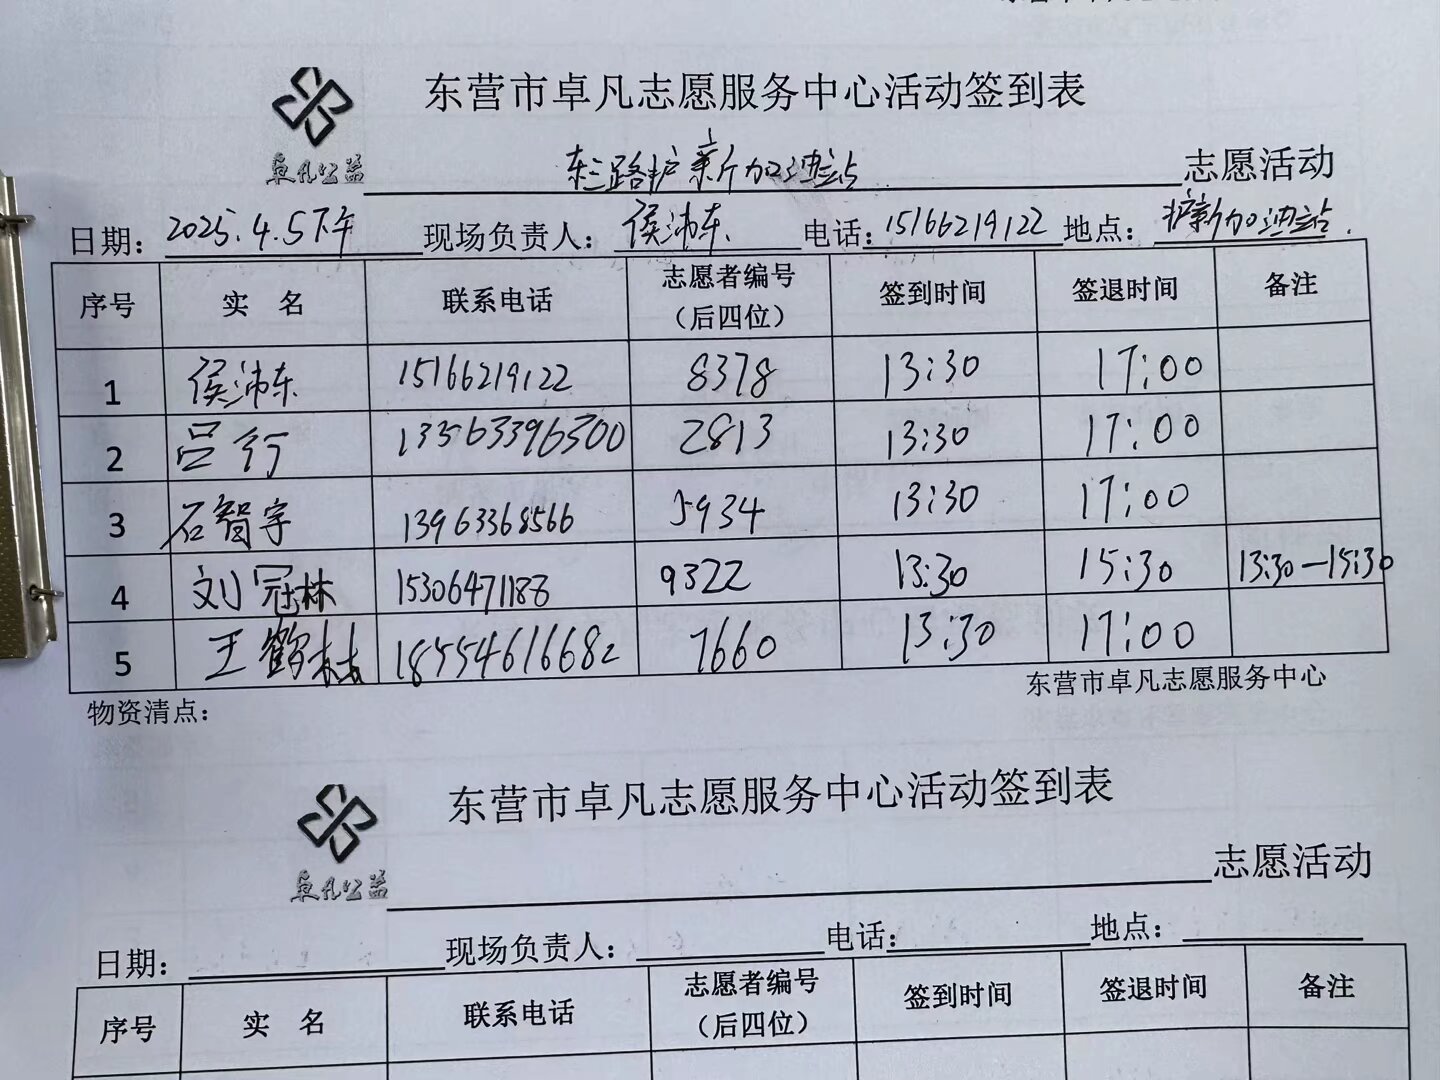 东营市卓凡志愿服务中心活动签到表
卓凡公益 东三路护新加油站 志愿活动
日期：2025.4.5下午 现场负责人：侯沛东 电话：15166219122 地点：护新加油站
序号 实 名 联系电话 志愿者编号（后四位） 签到时间 签退时间 备注
1 侯沛东 15166219122 8378 13:30 17:00
2 吕行 2813 13:30 17:00
3 石智宇 13963368566 5934 13:30 17:00
4 刘冠林 15306471188 9322 13:30 15:30 13:30—15:30
5 王鹤林 18554616682 7660 13:30 17:00
东营市卓凡志愿服务中心
物资清点：
东营市卓凡志愿服务中心活动签到表
卓凡公益 志愿活动
日期： 现场负责人： 电话： 地点：
序号 实 名 联系电话 志愿者编号（后四位） 签到时间 签退时间 备注